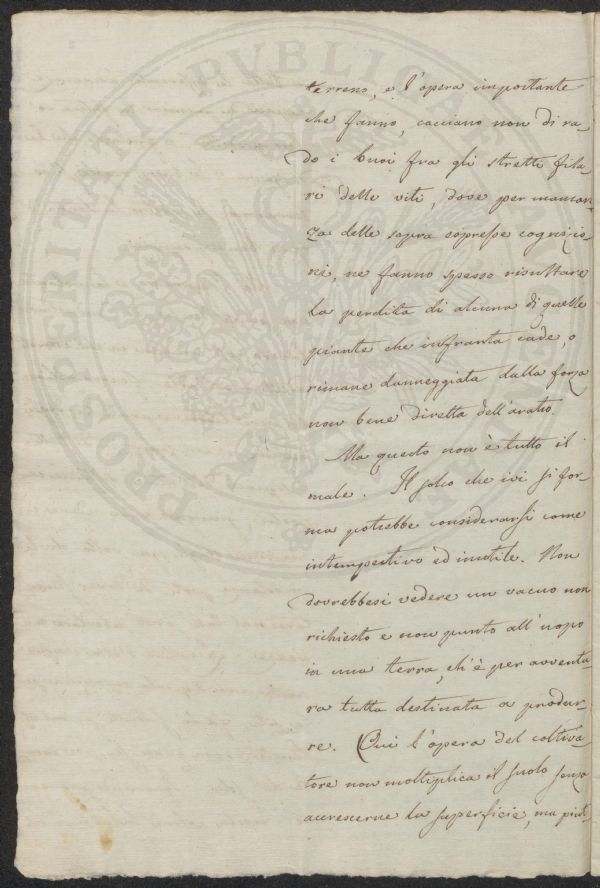 terreno, e l'opera importante
che fanno, cacciano non di ra-
do i buoi fra gli stretti fila-
ri delle viti, dove per mancan-
za delle sopra espresse cognizio-
ni, ne fanno spesso risultare
la perdita di alcuna di quelle
piante che infranta cade, o
rimane danneggiata dalla forza
non bene diretta dell'aratro
Ma questo non è tutto il
male. Il solco che ivi si for-
ma potrebbe considerarsi come
intempestivo ed inutile. Non
dovrebbesi vedere un vacuo non
richiesto e non punto all'uopo
in una terra, ch'è per avventu-
ra tutta destinata a produr-
re. Qui l'opera del coltiva-
tore non moltiplica il suolo senza
accrescerne la superficie, ma piut-
PROSPERITATI PVBLICAE